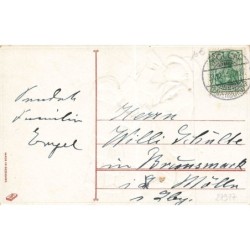 Familie
Engel
Herrn
Willi Schülte
in Brunsmark
i/ Mölln
i. Lbg.